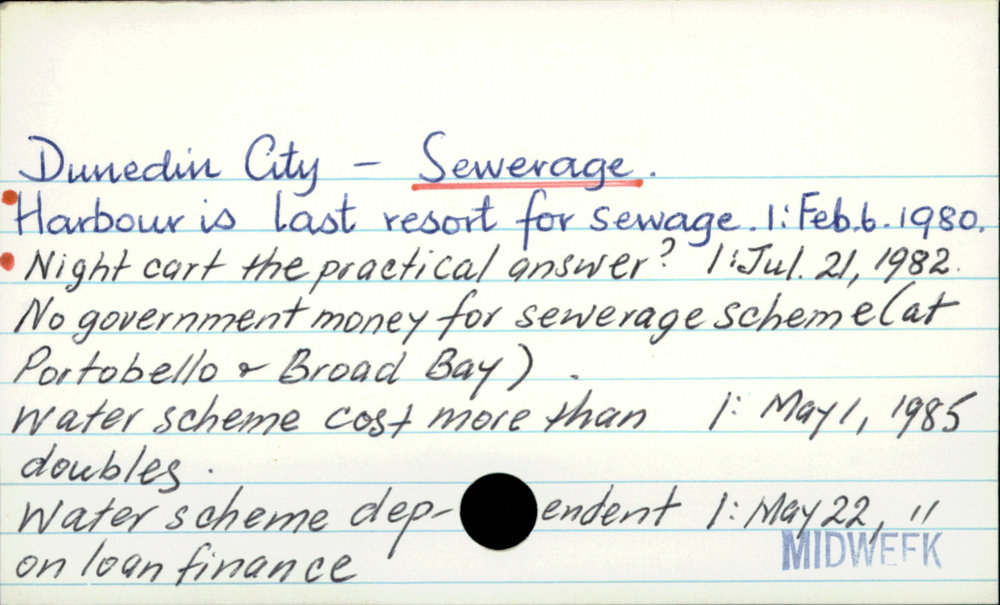 Dunedin City – Sewerage.
Harbour is last resort for sewage. 1: Feb. 6. 1980.
Night cart the practical answer? 1: Jul. 21, 1982.
No government money for sewerage scheme (at
Portobello & Broad Bay) .
Water scheme cost more than 1: May 1, 1985
doubles .
Water scheme dep-endent 1: May 22, "
on loan finance
MIDWEEK